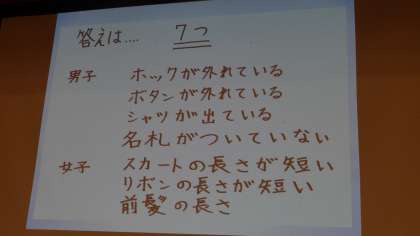 答えは.... 7つ
男子 ホックが外れている
ボタンが外れている
シャツが出ている
名札がついていない
女子 スカートの長さが短い
リボンの長さが短い
前髪の長さ